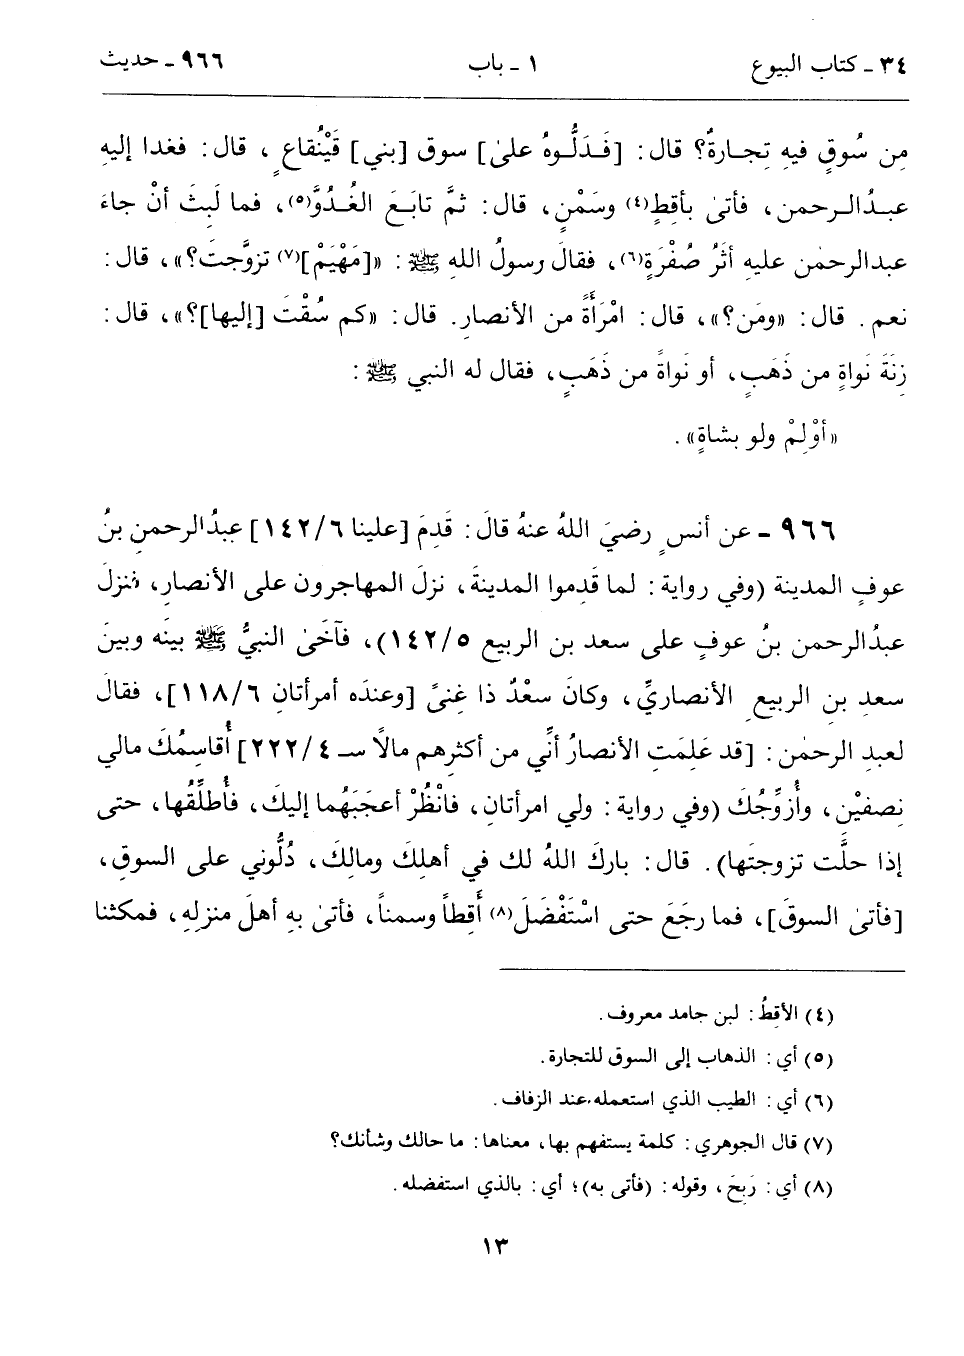 ٣٤ ـ كتاب البيوع ١ ـ باب ٩٦٦ ـ حديث
مِن سُوقٍ فيهِ تِجـارةٌ؟ قال: [فَـدَلُّـوهُ على] سوق [بني] قَيْنُقاعٍ، قال: فغدا إليهِ
عبـدُالـرحمن، فأتى بأقِطٍ(٤) وسَمْنٍ، قال: ثمَّ تابَـعَ الغُـدُوَّ(٥)، فما لَبِثَ أنْ جاءَ
عبدالرحمٰن عليهِ أثَرُ صُفْرَةٍ(٦)، فقالَ رسولُ اللهِ ﷺ: «[مَهْيَمْ](٧) تزوَّجتَ؟»، قال:
نعم. قال: «ومَن؟»، قال: امْرَأَةً من الأنصارِ. قال: «كم سُقْتَ [إليها]؟»، قال:
زِنَةَ نَواةٍ من ذَهَبٍ، أو نَواةً من ذَهَبٍ، فقال له النبي ﷺ:
«أوْلِمْ ولو بشاةٍ».
٩٦٦ ـ عن أنسٍ رضيَ اللهُ عنهُ قالَ: قَدِمَ [علينا ١٤٢/٦] عبدُالرحمنِ بنُ
عوفٍ المدينة (وفي رواية: لما قَدِموا المدينةَ، نزلَ المهاجرون على الأنصارِ، فنزلَ
عبدُالرحمن بنُ عوفٍ على سعد بن الربيع ١٤٢/٥)، فآخَىٰ النبيُّ ﷺ بينَه وبينَ
سعدِ بن الربيعِ الأنصاريِّ، وكانَ سعْدٌ ذا غِنىً [وعندَه أمرأتانِ ١١٨/٦]، فقالَ
لعبدِ الرحمٰن: [قد عَلِمَتِ الأنصارُ أنِّي من أكثرِهم مالًا سـ ٢٢٢/٤] أُقاسِمُكَ مالي
نِصفيْن، وأُزوِّجُكَ (وفي رواية: ولي امرأتان، فانْظُرْ أعجَبَهُما إليكَ، فأُطلِّقُها، حتى
إذا حلَّت تزوجتَها). قال: باركَ اللهُ لك في أهلِكَ ومالِكَ، دُلُّوني على السوقِ،
[فأتىٰ السوقَ]، فما رجَعَ حتى اسْتَفْضَلَ(٨) أَقِطاً وسمناً، فأتىٰ بهِ أهلَ منزلِهِ، فمكثنا
(٤) الأقِطُ: لبن جامد معروف.
(٥) أي: الذهاب إلى السوق للتجارة.
(٦) أي: الطيب الذي استعمله عند الزفاف.
(٧) قال الجوهري: كلمة يستفهم بها، معناها: ما حالك وشأنك؟
(٨) أي: رَبِحَ، وقوله: (فأتى به)؛ أي: بالذي استفضله.
١٣